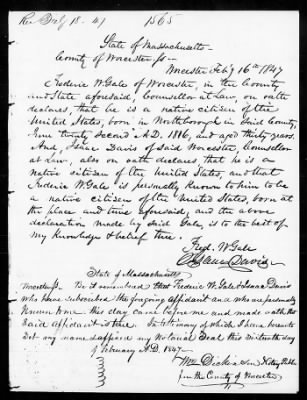 Rec Feby 18-47 1565
State of Massachusetts
County of Worcester ss—
Worcester Feb'y 16th 1847
Frederic W. Gale of Worcester, in the County
and State aforesaid, Counsellor at Law, on oath
declares, that he is a native citizen of the
United States, born in Northborough in said County,
June twenty second A.D. 1816, and aged thirty years.
And, Isaac Davis of said Worcester, Counsellor
at Law, also on oath declares that he is a
native citizen of the United States, and that
Frederic W. Gale is personally known to him to be
a native citizen of the United States, born at
the place and time aforesaid, and the above
declaration made by said Gale, is to the best of
my knowledge & belief true.
Fred. W. Gale
Isaac Davis
State of Massachusetts
Worcester ss. Be it remembered that Frederic W. Gale & Isaac Davis
who have subscribed the foregoing affidavit and who are personally
known to me this day came before me and made oath that
said affidavit is true. In testimony of which I have hereunto
set my name & affixed my Notarial Seal this Sixteenth day
of February A.D. 1847—
Wm Dickinson Notary Public
for the County of Worcester